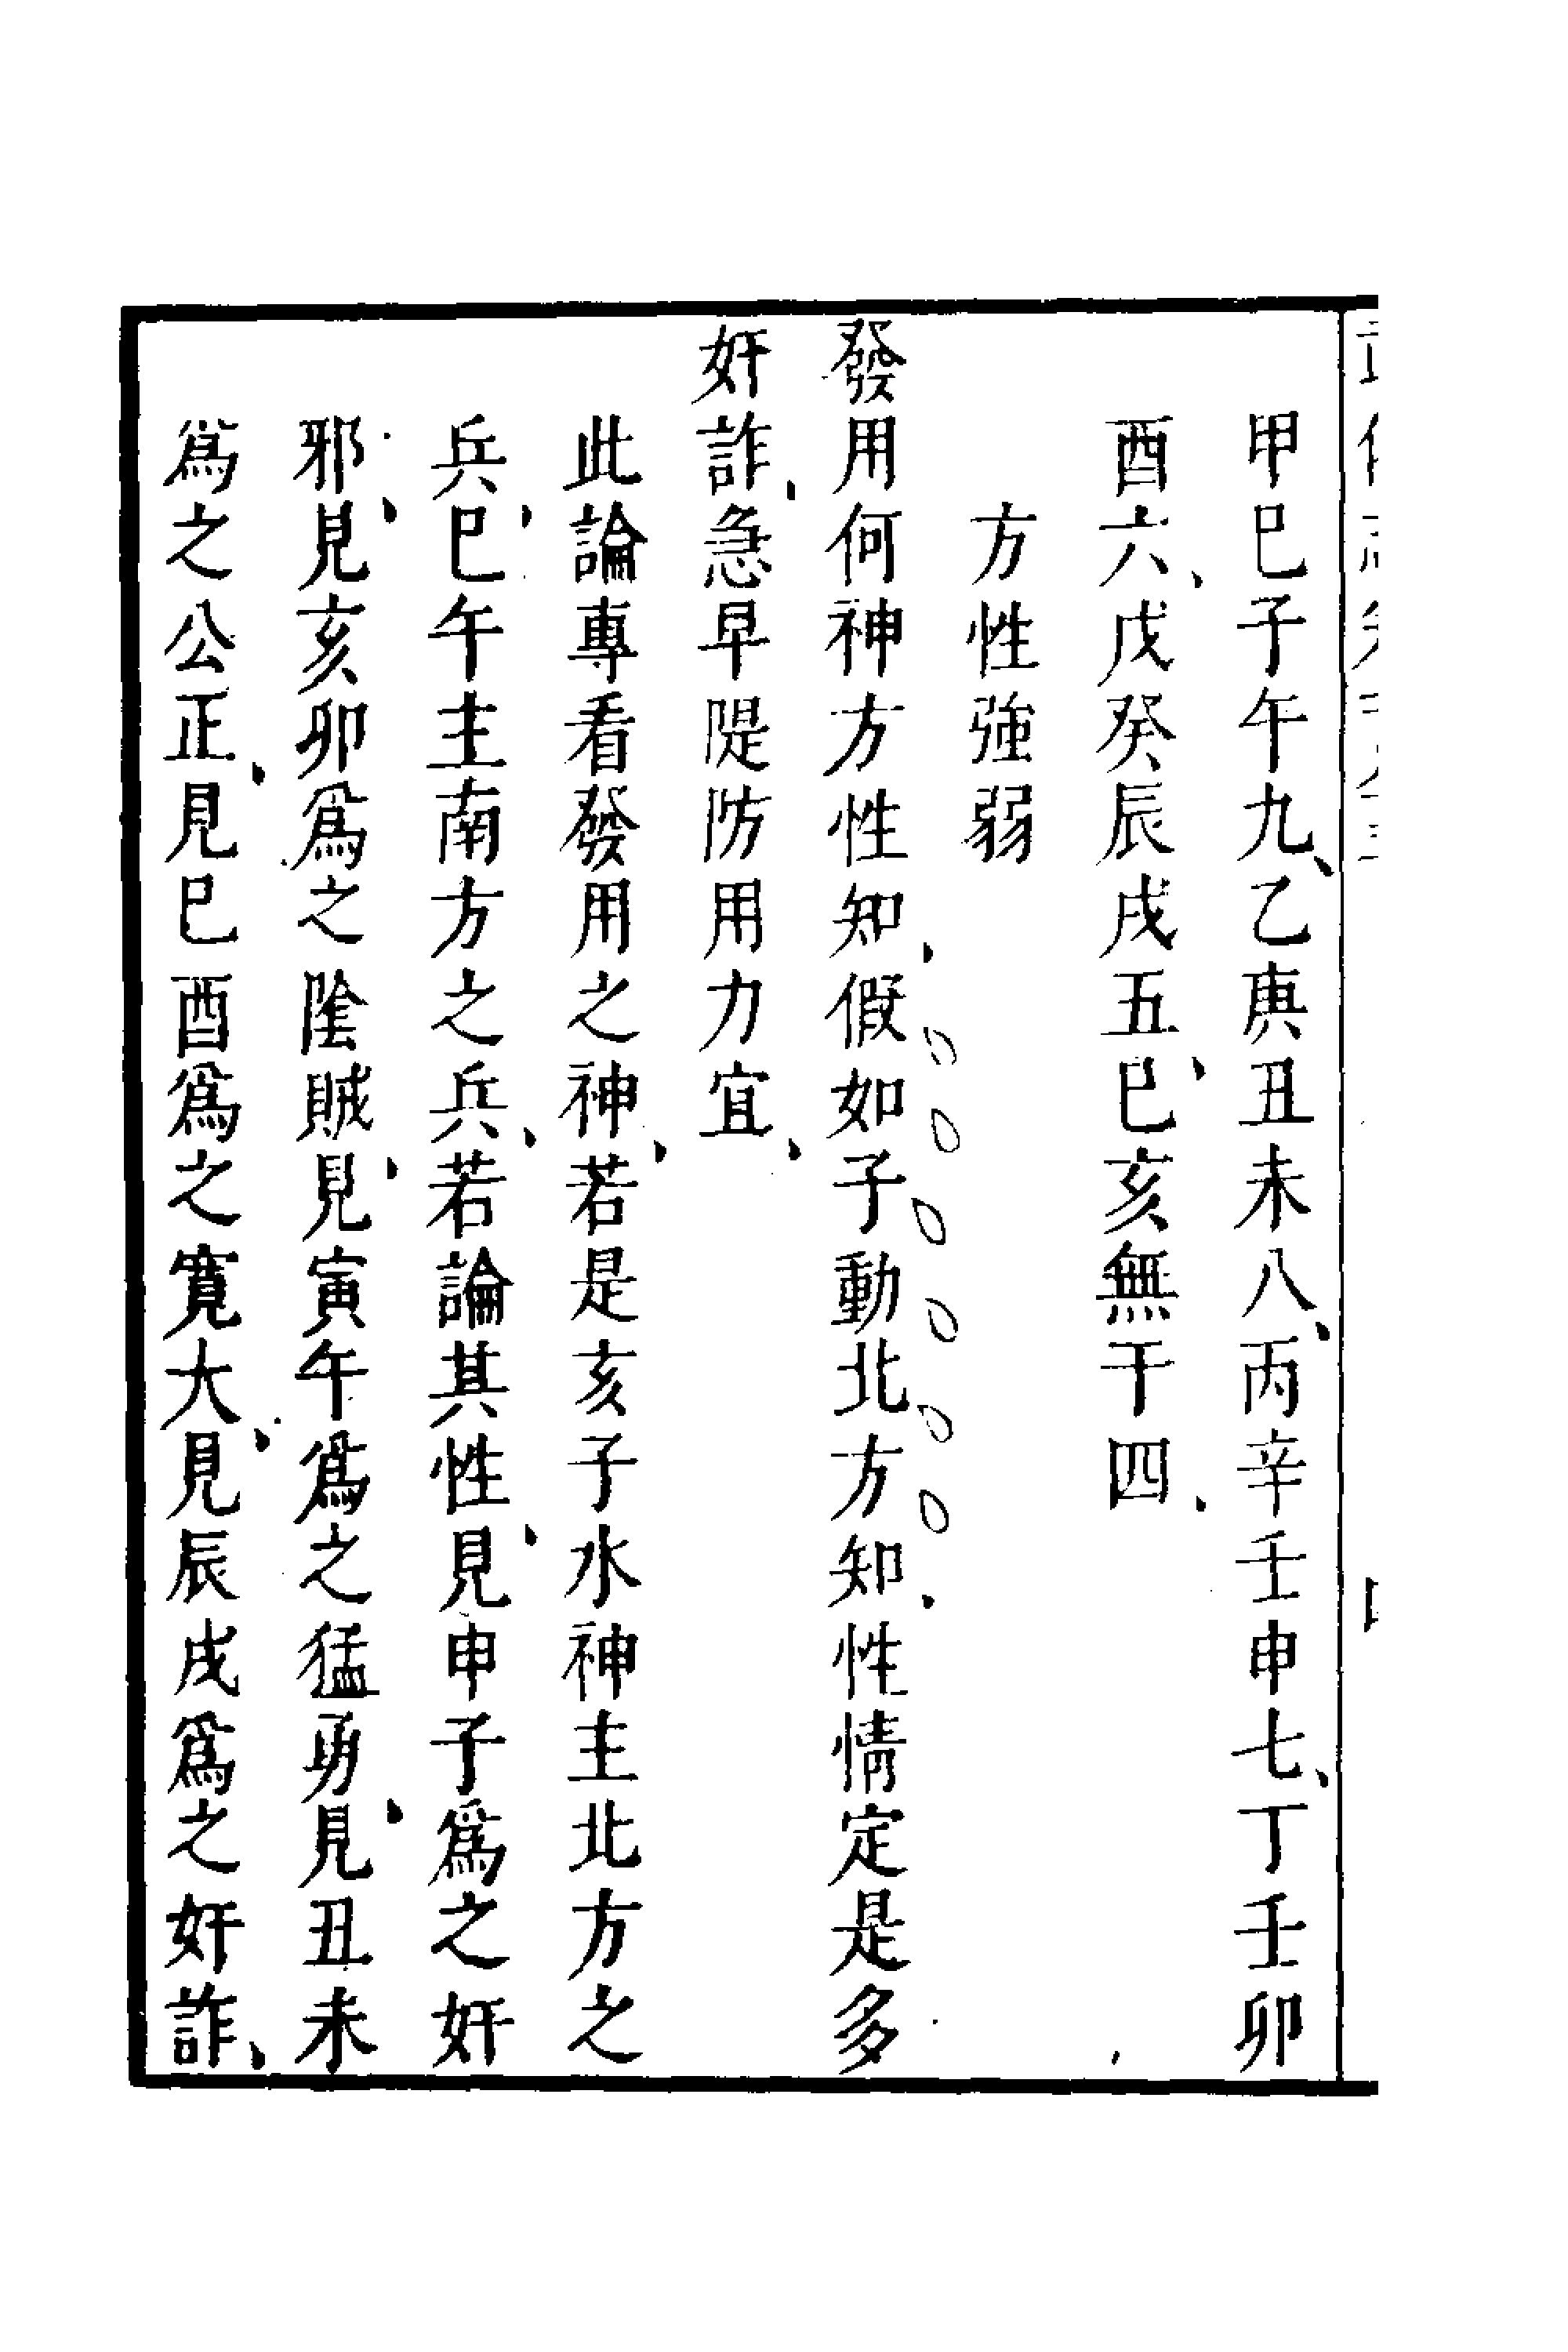 甲巳子午九、乙庚丑未八、丙辛壬申七、丁壬卯
酉六、戊癸辰戌五、巳亥無干四、
方性強弱
發用何神方性知、假如子動北方知、性情定是多
奸詐、急早隄防用力宜、
此論專看發用之神、若是亥子水神主北方之
兵、巳午主南方之兵、若論其性、見申子爲之奸
邪、見亥卯爲之陰賊、見寅午爲之猛勇、見丑未
爲之公正、見巳酉爲之寬大、見辰戌爲之奸詐、